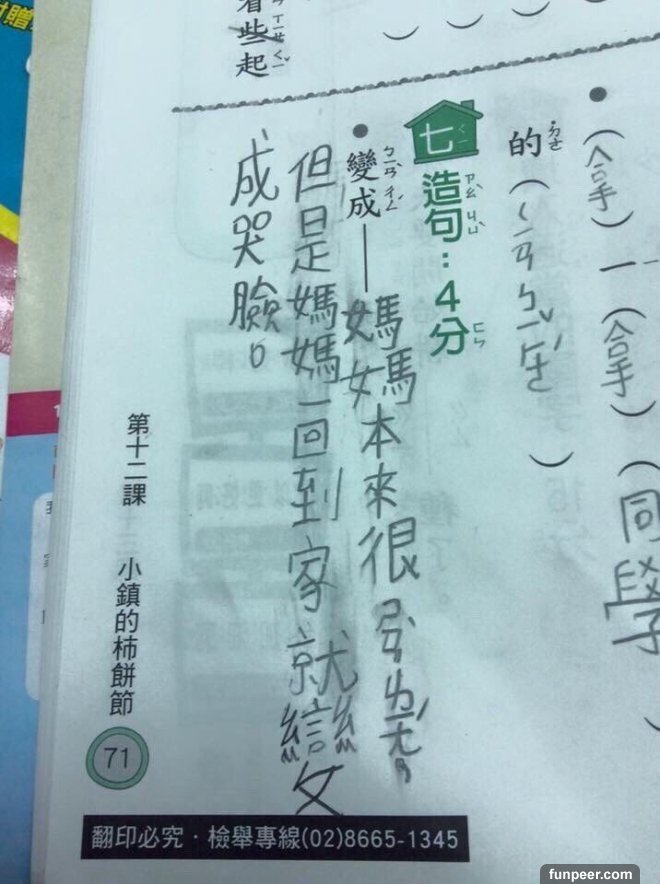 看些起
ㄒㄧㄝ ㄑㄧˇ
(拿)一(拿)(同學
的ㄉㄜ˙( )
七 造句：4分
變成——媽媽本來很
但是媽媽一回到家就變
成哭臉。
第十二課 小鎮的柿餅節
71
翻印必究．檢舉專線(02)8665-1345
funpeer.com